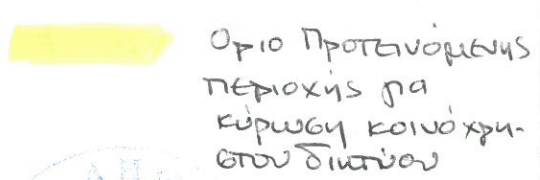 Οριο Προτεινόμενης
περιοχής για
κύρωση κοινόχρη-
στου δικτύου